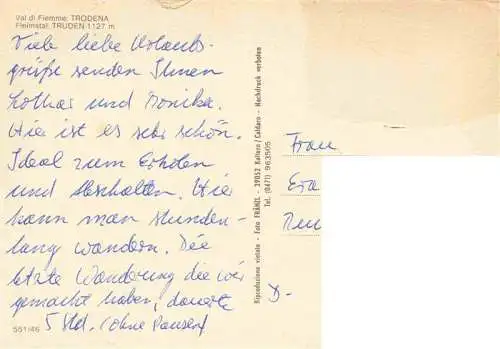 Val di Fiemme: TRODENA
Fleimstal: TRUDEN 1127 m
Viele liebe Urlaubs-
grüße senden Ihnen
Lothar und Monika.
Hier ist es sehr schön.
Ideal zum Erholen
und Abschalten. Hier
kann man stunden-
lang wandern. Die
letzte Wanderung die wir
gemacht haben, dauerte
5 Std. (ohne Pausen)
551/46
Riproduzione vietata - Foto FRÄNZL - 39052 Kaltern/Caldaro - Nachdruck verboten
Tel. (0471) 963505
Frau
D-